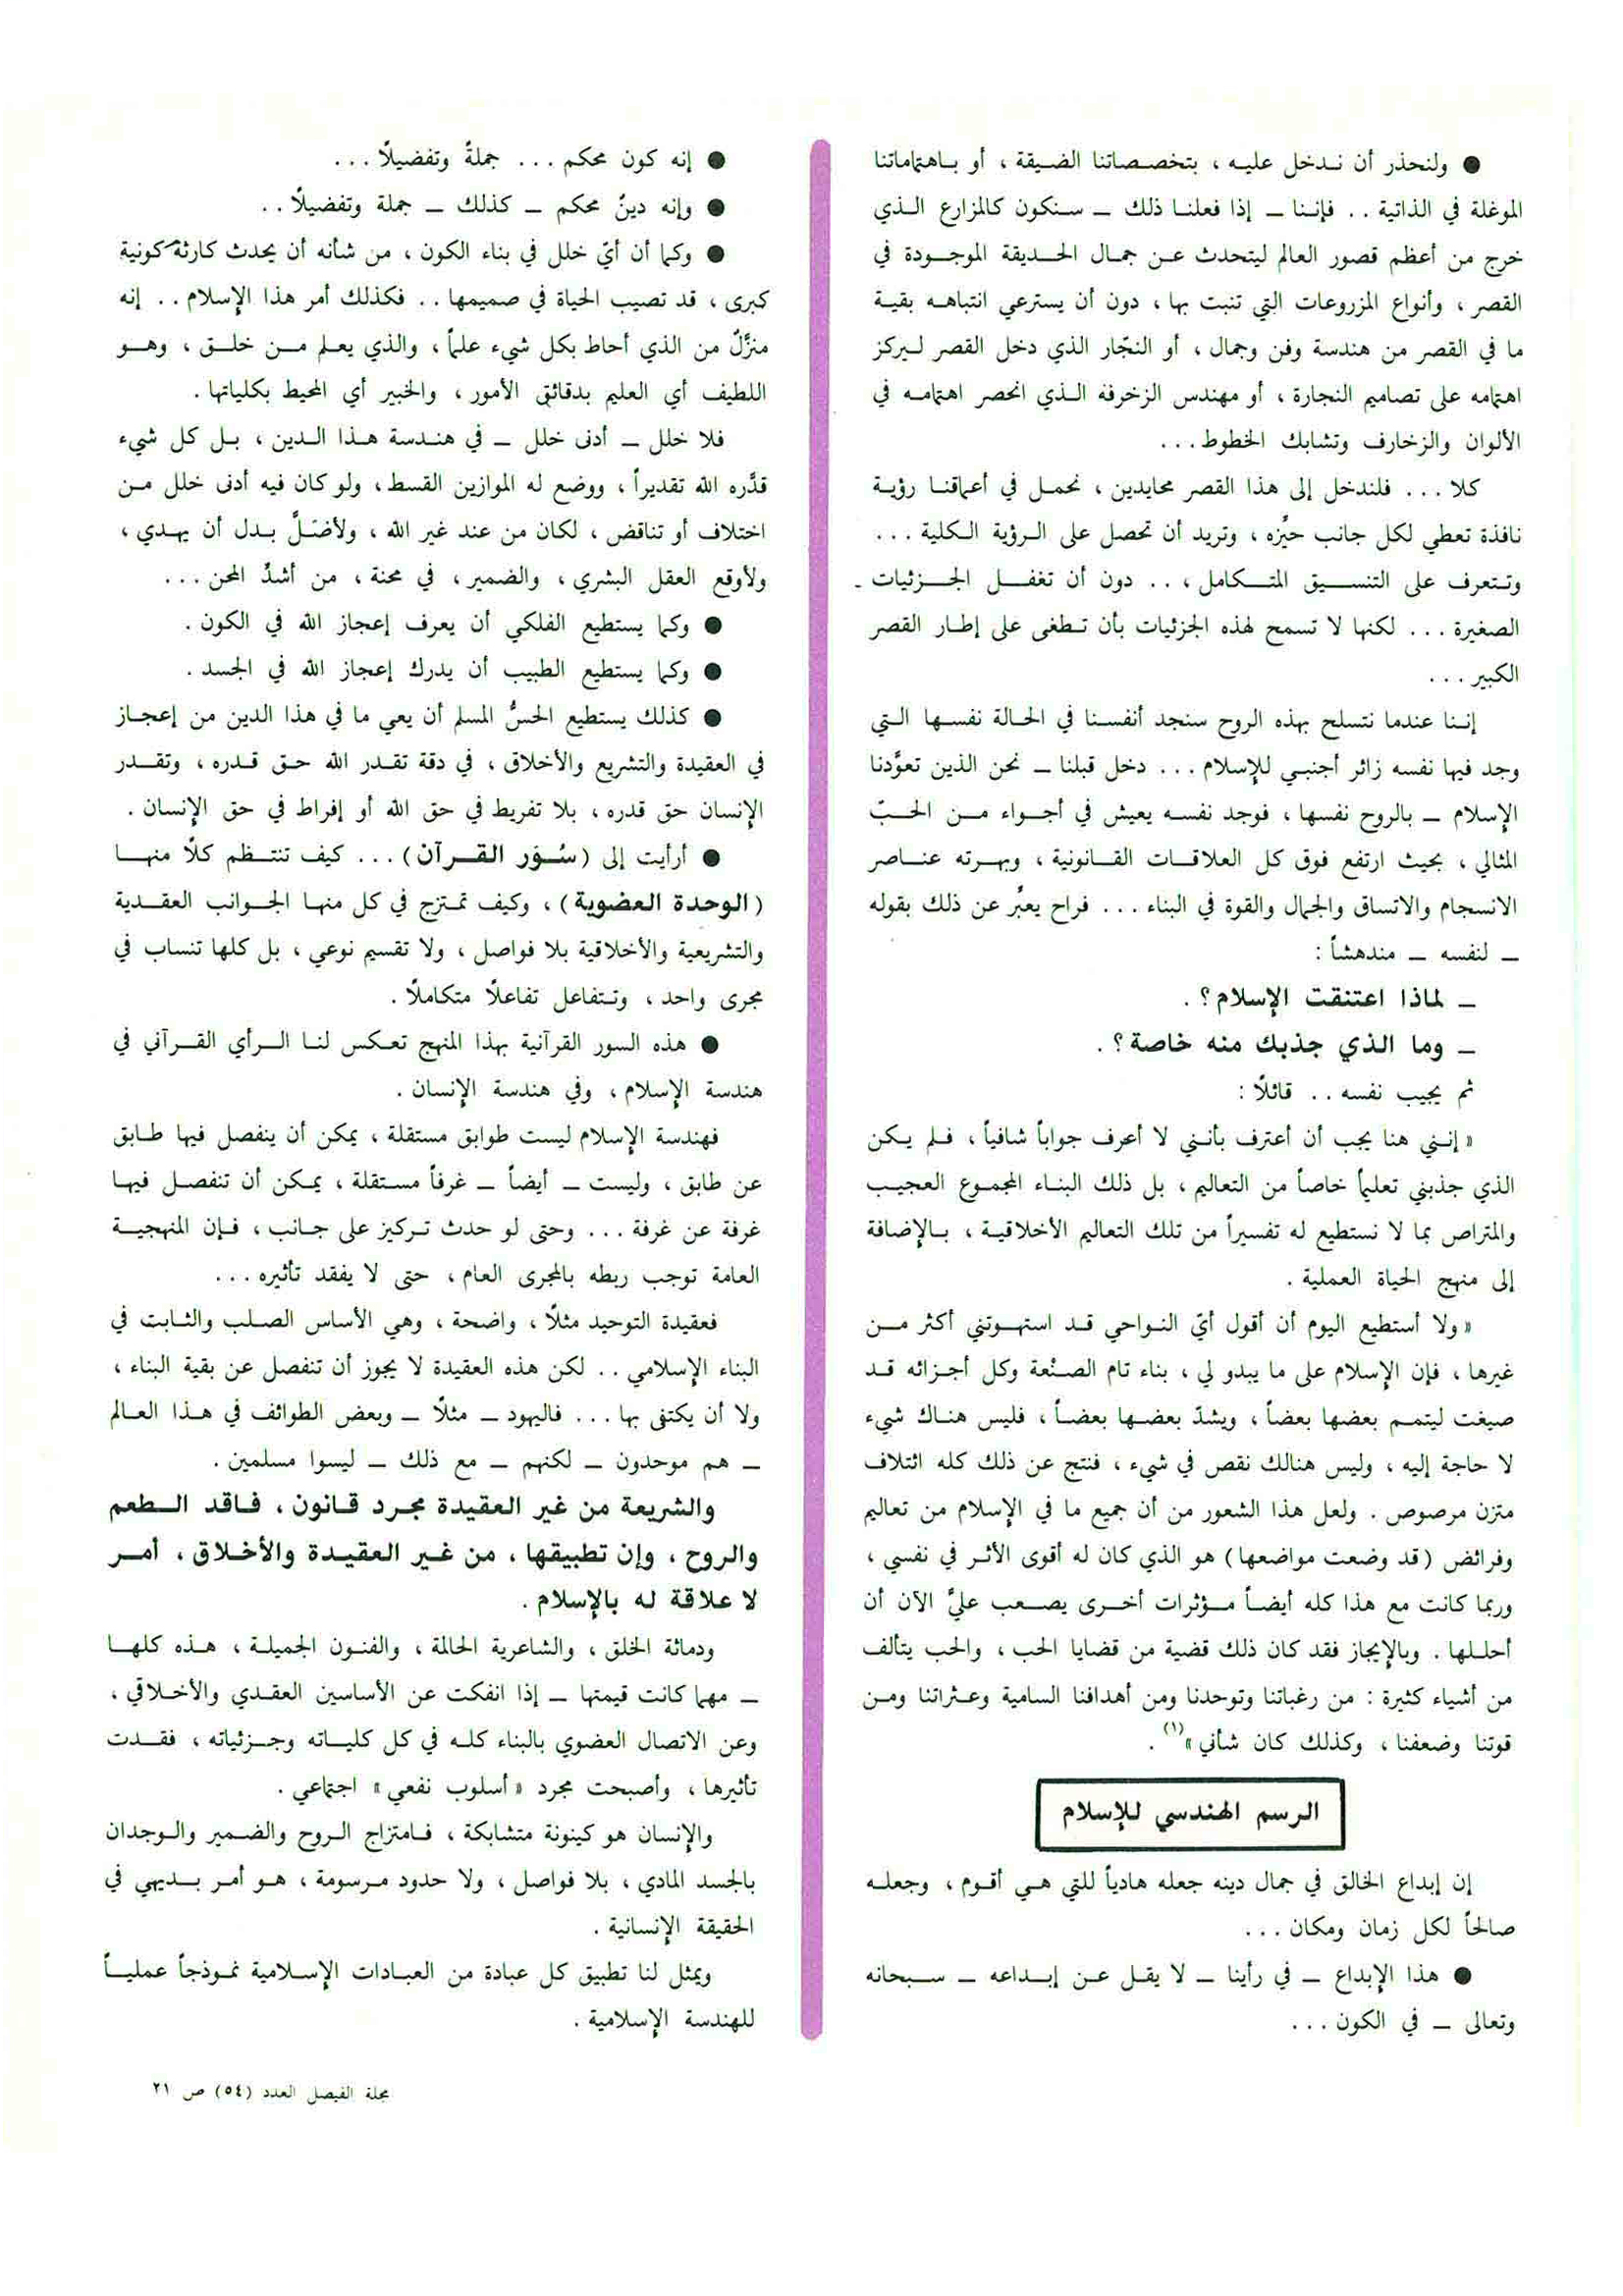 ● ولنحذر أن ندخل عليه ، بتخصصاتنا الضيقة ، أو باهتماماتنا
الموغلة في الذاتية .. فإننا ــ إذا فعلنا ذلك ــ سنكون كالمزارع الذي
خرج من أعظم قصور العالم ليتحدث عن جمال الحديقة الموجودة في
القصر ، وأنواع المزروعات التي تنبت بها ، دون أن يسترعي انتباهه بقية
ما في القصر من هندسة وفن وجمال ، أو النجّار الذي دخل القصر ليركز
اهتمامه على تصاميم النجارة ، أو مهندس الزخرفة الذي انحصر اهتمامه في
الألوان والزخارف وتشابك الخطوط ...
كلا ... فلندخل إلى هذا القصر محايدين ، نحمل في أعماقنا رؤية
نافذة تعطي لكل جانب حيِّزه ، وتريد أن تحصل على الرؤية الكلية ...
وتتعرف على التنسيق المتكامل ، .. دون أن تغفل الجزئيات ـ
الصغيرة ... لكنها لا تسمح لهذه الجزئيات بأن تطغى على إطار القصر
الكبير ...
إننا عندما نتسلح بهذه الروح سنجد أنفسنا في الحالة نفسها التي
وجد فيها نفسه زائر أجنبي للإسلام ... دخل قبلنا ــ نحن الذين تعوَّدنا
الإسلام ــ بالروح نفسها ، فوجد نفسه يعيش في أجواء من الحبّ
المثالي ، بحيث ارتفع فوق كل العلاقات القانونية ، وبهرته عناصر
الانسجام والاتساق والجمال والقوة في البناء ... فراح يعبِّر عن ذلك بقوله
ــ لنفسه ــ مندهشاً :
ــ لماذا اعتنقت الإسلام ؟ .
ــ وما الذي جذبك منه خاصة ؟ .
ثم يجيب نفسه .. قائلاً :
« إنني هنا يجب أن أعترف بأنني لا أعرف جواباً شافياً ، فلم يكن
الذي جذبني تعليماً خاصاً من التعاليم ، بل ذلك البناء المجموع العجيب
والمتراص بما لا نستطيع له تفسيراً من تلك التعاليم الأخلاقية ، بالإضافة
إلى منهج الحياة العملية .
« ولا أستطيع اليوم أن أقول أيّ النواحي قد استهوتني أكثر من
غيرها ، فإن الإسلام على ما يبدو لي ، بناء تام الصنْعة وكل أجزائه قد
صيغت ليتمم بعضها بعضاً ، ويشدّ بعضها بعضاً ، فليس هناك شيء
لا حاجة إليه ، وليس هنالك نقص في شيء ، فنتج عن ذلك كله ائتلاف
متزن مرصوص . ولعل هذا الشعور من أن جميع ما في الإسلام من تعاليم
وفرائض ( قد وضعت مواضعها ) هو الذي كان له أقوى الأثر في نفسي ،
وربما كانت مع هذا كله أيضاً مؤثرات أخرى يصعب عليَّ الآن أن
أحللها . وبالإيجاز فقد كان ذلك قضية من قضايا الحب ، والحب يتألف
من أشياء كثيرة : من رغباتنا وتوحدنا ومن أهدافنا السامية وعثراتنا ومن
قوتنا وضعفنا ، وكذلك كان شأني »(١) .
الرسم الهندسي للإسلام
إن إبداع الخالق في جمال دينه جعله هادياً للتي هي أقوم ، وجعله
صالحاً لكل زمان ومكان ...
● هذا الإبداع ــ في رأينا ــ لا يقل عن إبداعه ــ سبحانه
وتعالى ــ في الكون ...
● إنه كون محكم ... جملةً وتفضيلاً ...
● وإنه دينٌ محكم ــ كذلك ــ جملة وتفضيلاً ..
● وكما أن أيّ خلل في بناء الكون ، من شأنه أن يحدث كارثة كونية
كبرى ، قد تصيب الحياة في صميمها .. فكذلك أمر هذا الإسلام .. إنه
منزَّلٌ من الذي أحاط بكل شيء علماً ، والذي يعلم من خلق ، وهو
اللطيف أي العليم بدقائق الأمور ، والخبير أي المحيط بكلياتها .
فلا خلل ــ أدنى خلل ــ في هندسة هذا الدين ، بل كل شيء
قدَّره الله تقديراً ، ووضع له الموازين القسط ، ولو كان فيه أدنى خلل من
اختلاف أو تناقض ، لكان من عند غير الله ، ولأضَلَّ بدل أن يهدي ،
ولأوقع العقل البشري ، والضمير ، في محنة ، من أشدِّ المحن ...
● وكما يستطيع الفلكي أن يعرف إعجاز الله في الكون .
● وكما يستطيع الطبيب أن يدرك إعجاز الله في الجسد .
● كذلك يستطيع الحسُّ المسلم أن يعي ما في هذا الدين من إعجاز
في العقيدة والتشريع والأخلاق ، في دقة تقدر الله حق قدره ، وتقدر
الإنسان حق قدره ، بلا تفريط في حق الله أو إفراط في حق الإنسان .
● أرأيت إلى ( سُوَر القرآن ) ... كيف تنتظم كلاً منها
( الوحدة العضوية ) ، وكيف تمتزج في كل منها الجوانب العقدية
والتشريعية والأخلاقية بلا فواصل ، ولا تقسيم نوعي ، بل كلها تنساب في
مجرى واحد ، وتتفاعل تفاعلاً متكاملاً .
● هذه السور القرآنية بهذا المنهج تعكس لنا الرأي القرآني في
هندسة الإسلام ، وفي هندسة الإنسان .
فهندسة الإسلام ليست طوابق مستقلة ، يمكن أن ينفصل فيها طابق
عن طابق ، وليست ــ أيضاً ــ غرفاً مستقلة ، يمكن أن تنفصل فيها
غرفة عن غرفة ... وحتى لو حدث تركيز على جانب ، فإن المنهجية
العامة توجب ربطه بالمجرى العام ، حتى لا يفقد تأثيره ...
فعقيدة التوحيد مثلاً ، واضحة ، وهي الأساس الصلب والثابت في
البناء الإسلامي .. لكن هذه العقيدة لا يجوز أن تنفصل عن بقية البناء ،
ولا أن يكتفى بها ... فاليهود ــ مثلاً ــ وبعض الطوائف في هذا العالم
ــ هم موحدون ــ لكنهم ــ مع ذلك ــ ليسوا مسلمين .
والشريعة من غير العقيدة مجرد قانون ، فاقد الطعم
والروح ، وإن تطبيقها ، من غير العقيدة والأخلاق ، أمر
لا علاقة له بالإسلام .
ودماثة الخلق ، والشاعرية الحالمة ، والفنون الجميلة ، هذه كلها
ــ مهما كانت قيمتها ــ إذا انفكت عن الأساسين العقدي والأخلاقي ،
وعن الاتصال العضوي بالبناء كله في كل كلياته وجزئياته ، فقدت
تأثيرها ، وأصبحت مجرد « أسلوب نفعي » اجتماعي .
والإنسان هو كينونة متشابكة ، فامتزاج الروح والضمير والوجدان
بالجسد المادي ، بلا فواصل ، ولا حدود مرسومة ، هو أمر بديهي في
الحقيقة الإنسانية .
ويمثل لنا تطبيق كل عبادة من العبادات الإسلامية نموذجاً عملياً
للهندسة الإسلامية .
مجلة الفيصل العدد (٥٤) ص ٢١